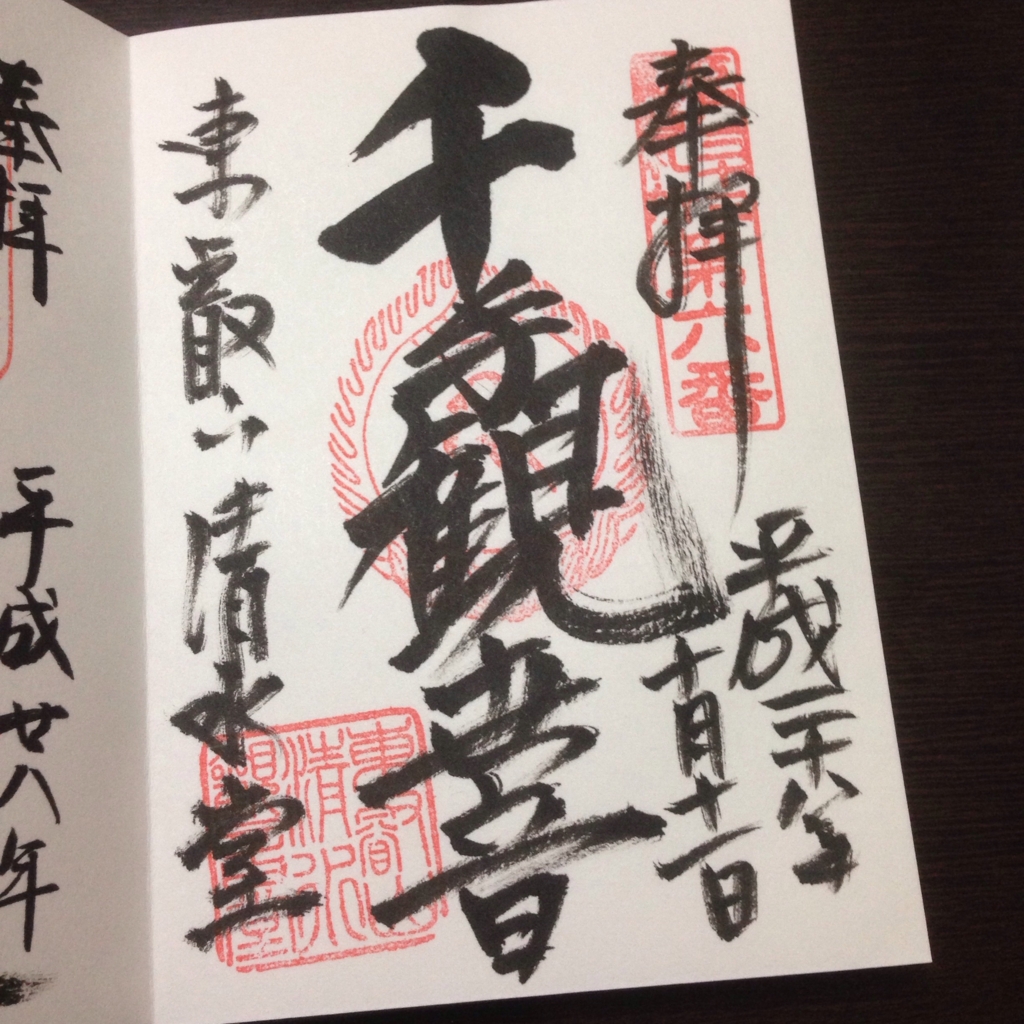 奉拝
第六番
平成二十八年
十月十一日
千手観音
東叡山清水堂
東叡山
清水
観音堂
奉拝
平成廿八年